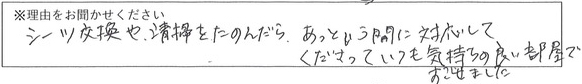 ※理由をお聞かせください
シーツ交換や、清掃をたのんだら、あっという間に対応して
くださっていつも気持ちの良い部屋で
おせました